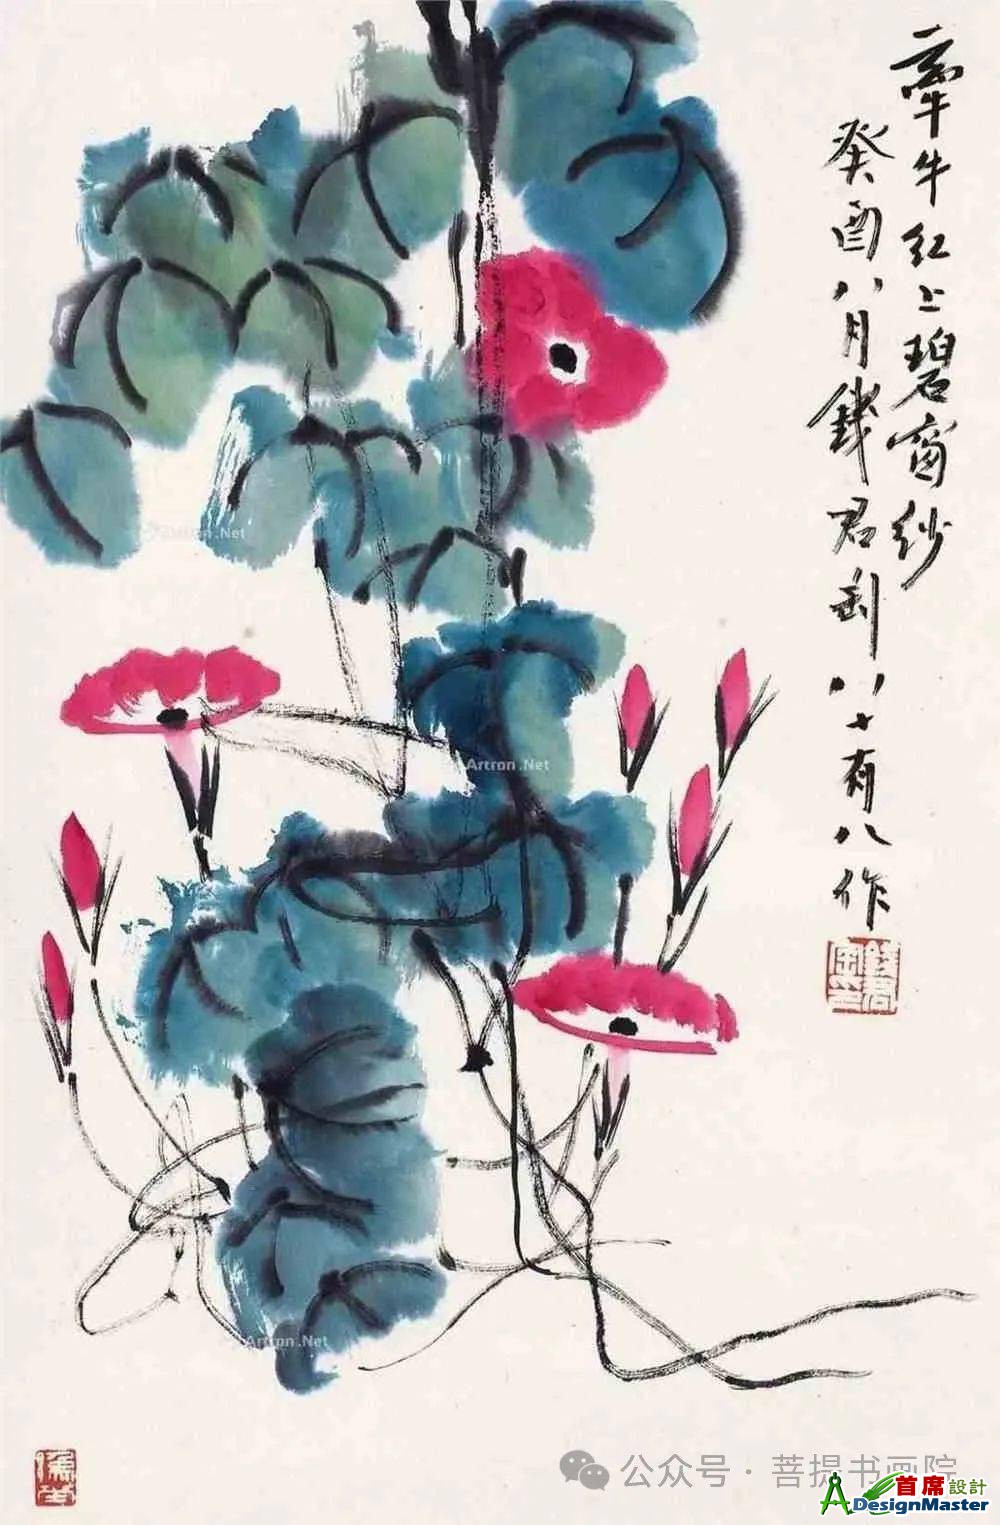 牽牛红上碧窗纱
癸酉八月錢君匋八十有八作
錢君匋印
Artron.Net
Artron.Net
Artron.Net
公众号 · 菩提书画院
首席設計
ADesignMaster